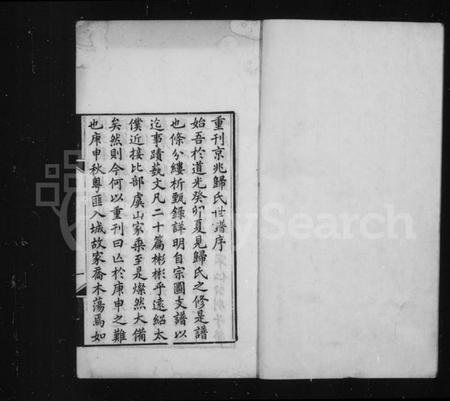 重刊京兆歸氏世譜序
始吾於道光癸卯夏見歸氏之修是譜
也條分縷析甄錄詳明自宗圖支譜以
迄事蹟藝文凡二十篇彬彬乎遠紹太
僕近接比部虞山家乘至是燦然大備
矣然則今何以重刊曰亾於庚申之難
也庚申秋粵匪入城故家喬木蕩焉如
FamilySearch